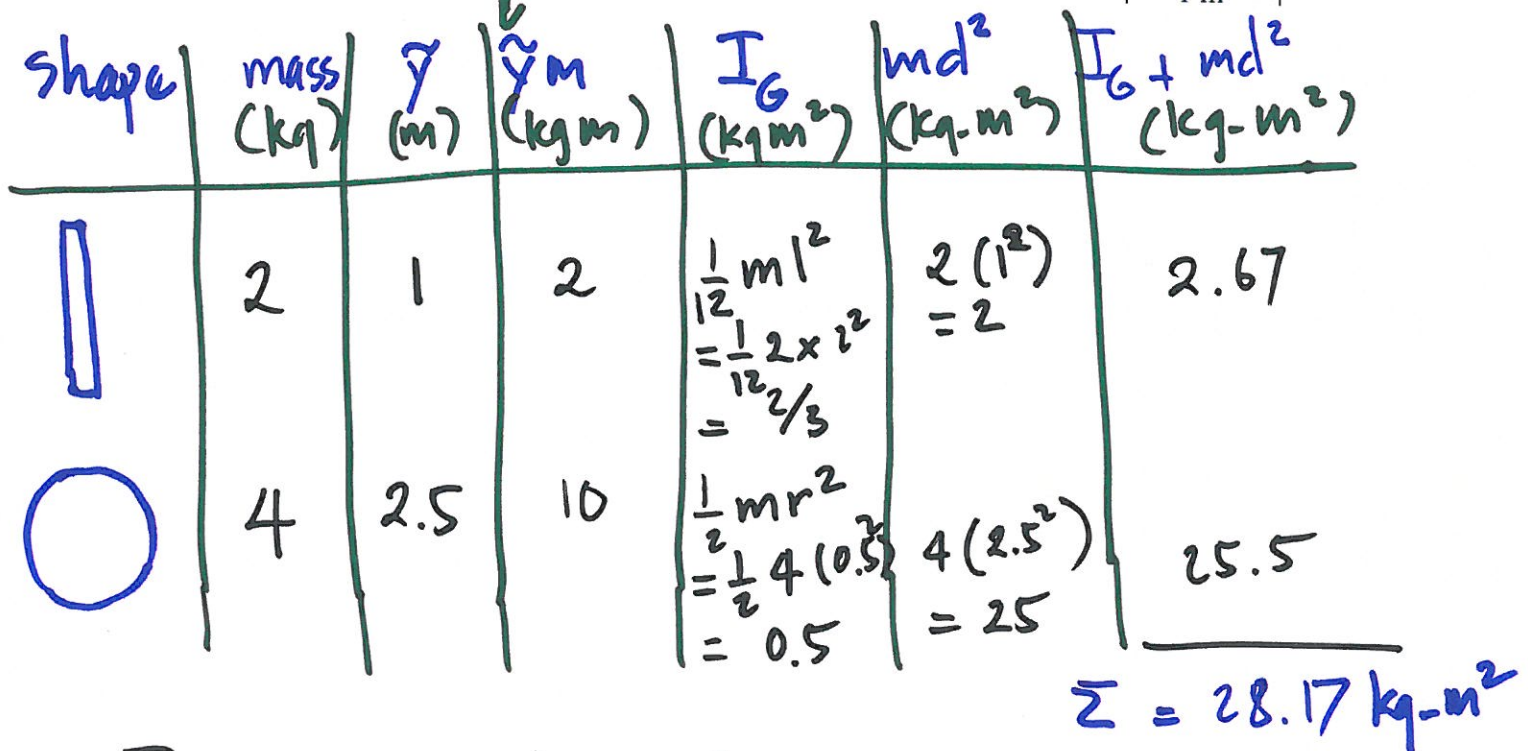 shape | mass (kg) | ỹ (m) | ỹm (kgm) | I_G (kgm²) | md² (kg-m²) | I_G + md² (kg-m²)
2 | 1 | 2 | 1/12 ml² = 1/12 2×2² = 2/3 | 2(1²) = 2 | 2.67
4 | 2.5 | 10 | 1/2 mr² = 1/2 4(0.5²) = 0.5 | 4(2.5²) = 25 | 25.5
Σ = 28.17 kg-m²